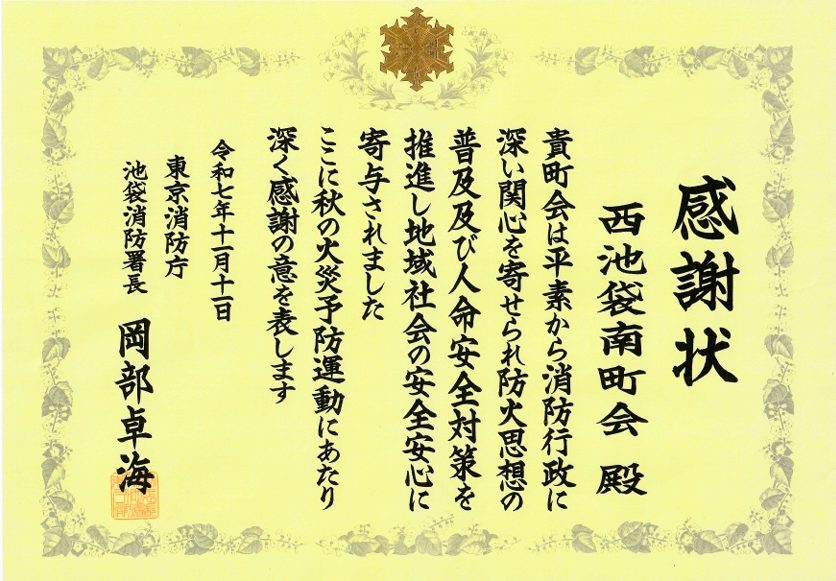 感謝状
西池袋南町会 殿
貴町会は平素から消防行政に
深い関心を寄せられ防火思想の
普及及び人命安全対策を
推進し地域社会の安全安心に
寄与されました
ここに秋の火災予防運動にあたり
深く感謝の意を表します
令和七年十一月十一日
東京消防庁
池袋消防署長 岡部卓海